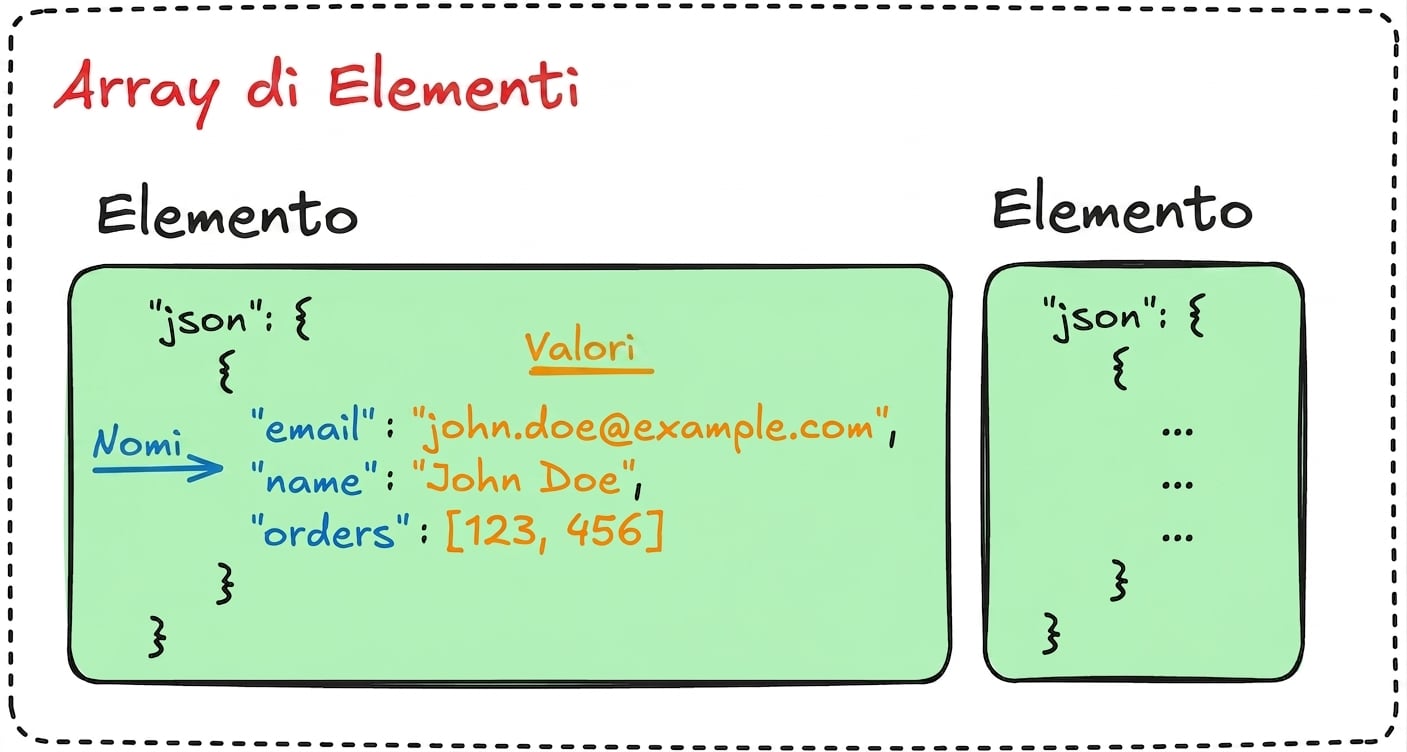 Array di Elementi
Elemento
"json": {
{
Valori
Nomi
"email": "john.doe@example.com",
"name": "John Doe",
"orders": [123, 456]
}
}
Elemento
"json": {
{
...
...
...
}
}